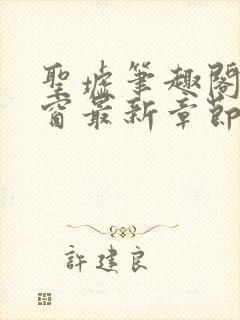 聖墟筆趣閣
窗最新章節
許建良